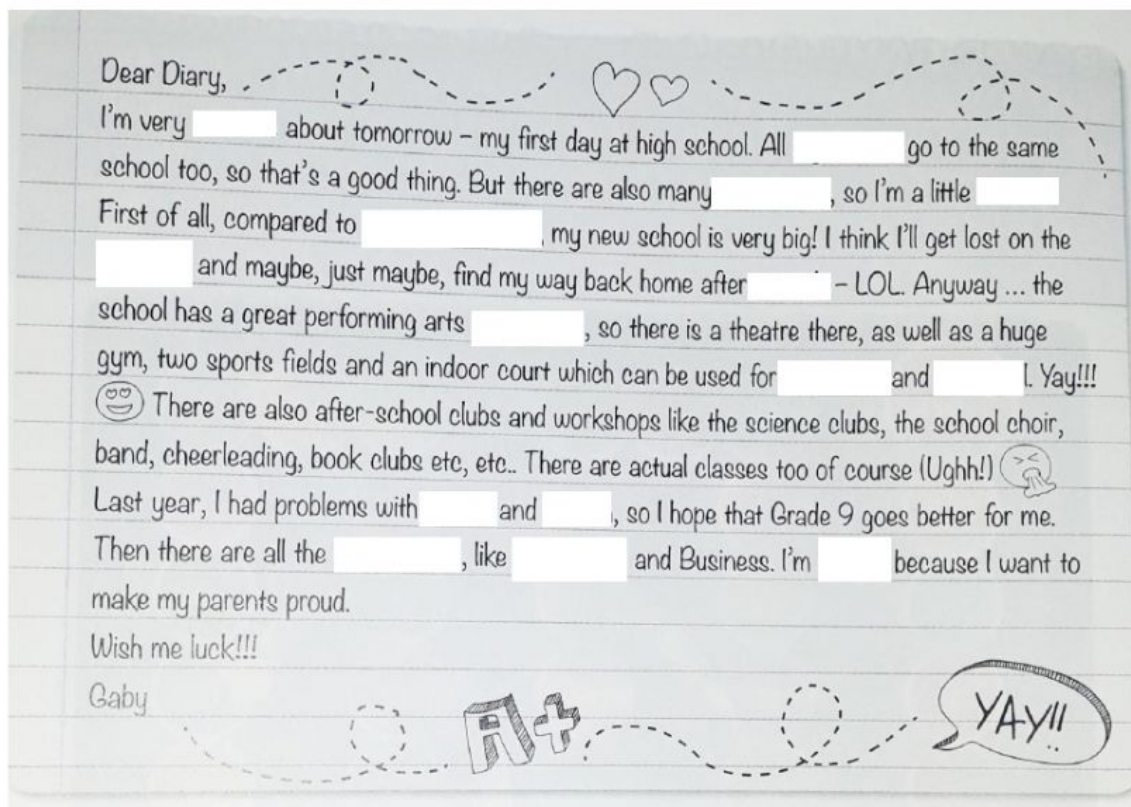 Dear Diary,
I'm very about tomorrow – my first day at high school. All go to the same
school too, so that's a good thing. But there are also many , so I'm a little
First of all, compared to , my new school is very big! I think I'll get lost on the
and maybe, just maybe, find my way back home after – LOL. Anyway ... the
school has a great performing arts , so there is a theatre there, as well as a huge
gym, two sports fields and an indoor court which can be used for and . Yay!!!
There are also after-school clubs and workshops like the science clubs, the school choir,
band, cheerleading, book clubs etc, etc.. There are actual classes too of course (Ughh!)
Last year, I had problems with and , so I hope that Grade 9 goes better for me.
Then there are all the , like and Business. I'm because I want to
make my parents proud.
Wish me luck!!!
Gaby
A+
YAY!!